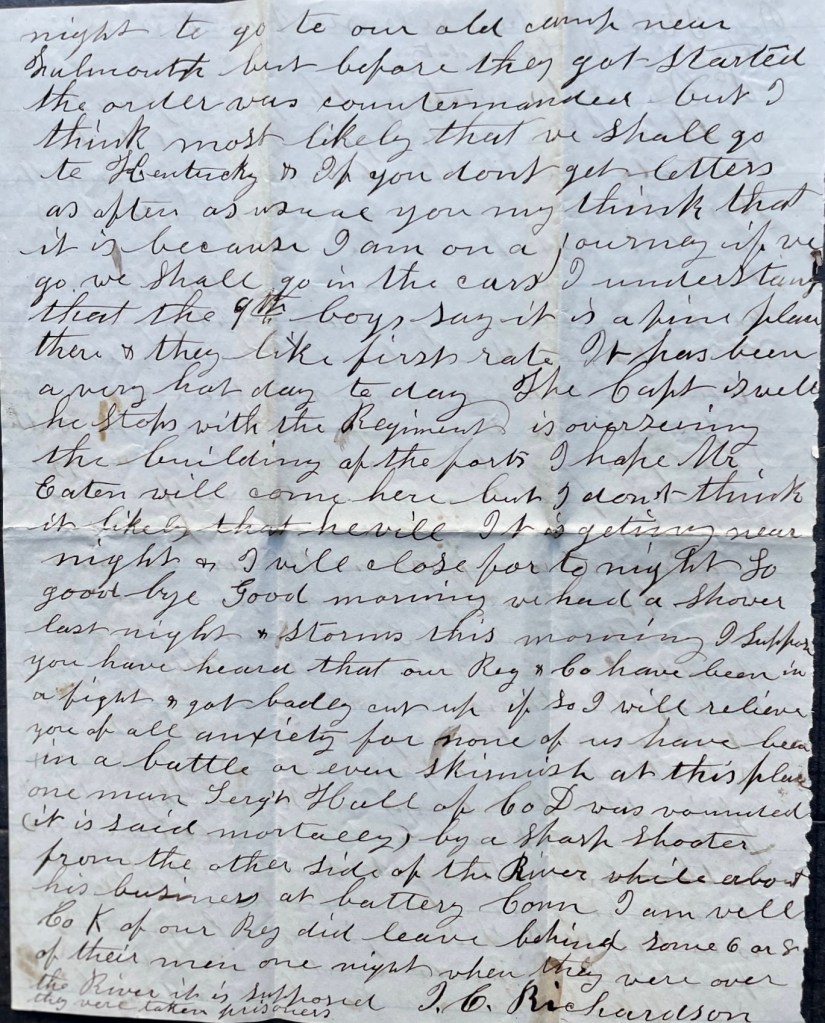 night to go to our old camp near
Falmouth but before they got started
the order was countermanded but I
think most likely that we shall go
to Kentucky & If you dont get letters
as often as usual you my think that
it is because I am on a journey if we
go we shall go in the cars I understand
that the 9th boys say it is a fine place
there & they like first rate It has been
a very hot day to day The Capt is well
he stops with the Regiment is overseeing
the building of the forts I hope Mr
Eaten will come here but I dont think
it likely that he will It is geting near
night & I will close for to night So
good bye Good morning we had a shower
last night & storms this morning I Suppose
you have heard that our Reg & Co have been in
a fight & got badly cut up if so I will relieve
you of all anxiety for none of us have been
in a battle or even skirmish at this place
one man Sergt Hall of Co D was wounded
(it is said mortally) by a sharp shooter
from the other side of the River while about
his business at battery Conn I am well
Co K of our Reg did leave behind some 6 or 8
of their men one night when they were over
the River it is supposed J. C. Richardson
they were taken prisoners